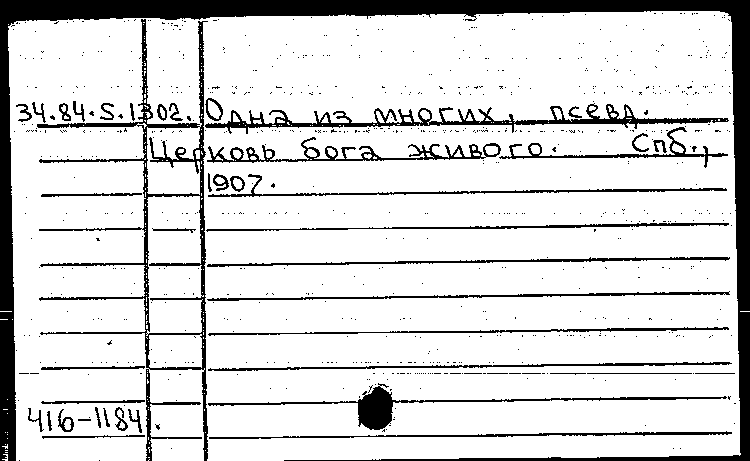 34.84.S.1302. Одна из многих, псевд.
Церковь бога живого. Спб.,
1907.
416-1184.